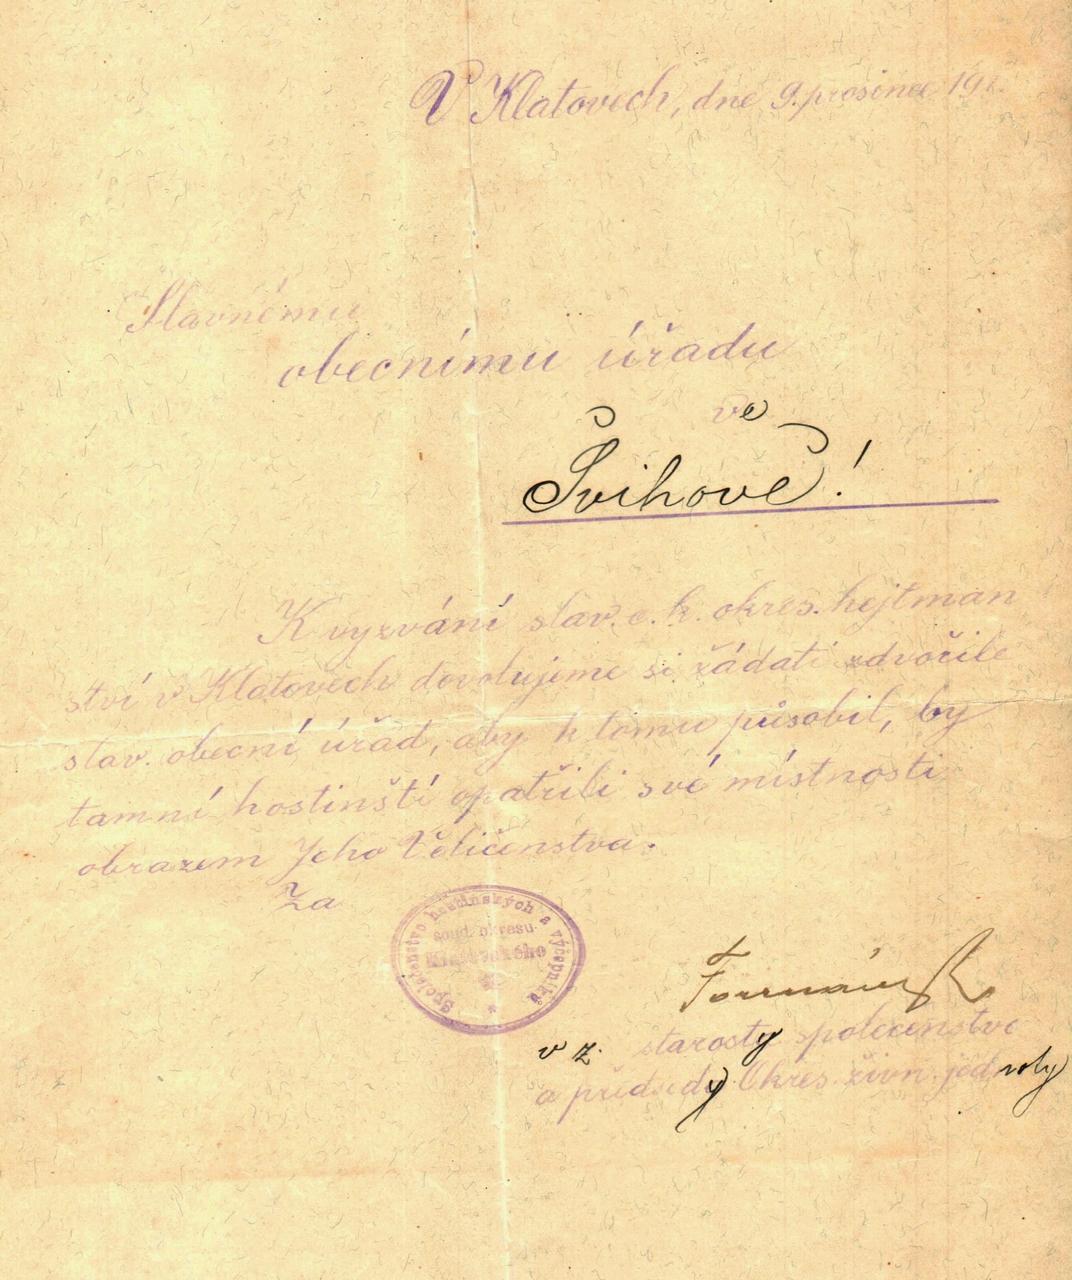 V Klatovech, dne 9. prosince 191
Slavnému
obecnímu úřadu
ve
Švihově!
K vyzvání slav. c. k. okres. hejtman
ství v Klatovech dovolujeme si žádati zdvořile
slav. obecní úřad, aby k tomu působil, by
tamní hostinští opatřili své místnosti
obrazem Jeho Veličenstva.
Za
Společenstvo hostinských a výčepníků
soud. okresu
Klatovského
v z. starosty společenstva
a předsedy Okres. živn. jednoty